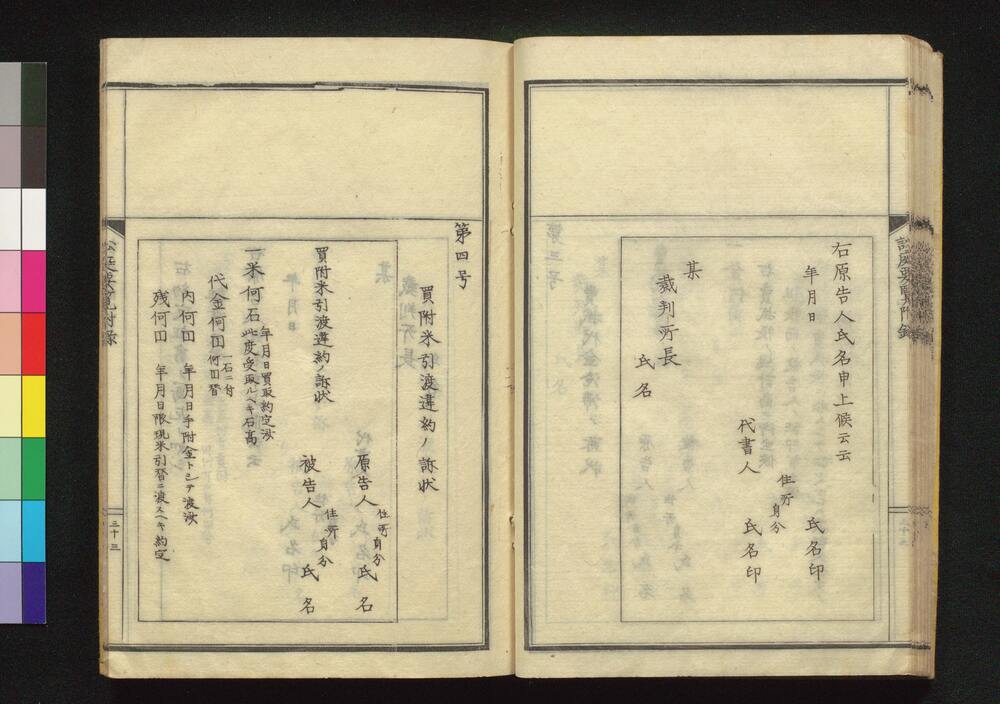 右原告人氏名申上候云云
年月日
氏名印
住所
身分
代書人
氏名印
某
裁判所長
氏名
第四号
買附米引渡違約ノ訴状
住所
身分
原告人
氏名
買附米引渡違約ノ訴状
住所
身分
被告人
氏名
年月日買取約定済
一米何石
此度受取ルヘキ石高
代金何円
一石ニ付
何円替
内何円
年月日手附金トシテ渡済
残何円
年月日限現米引替ニ渡スヘキ約定
三十三